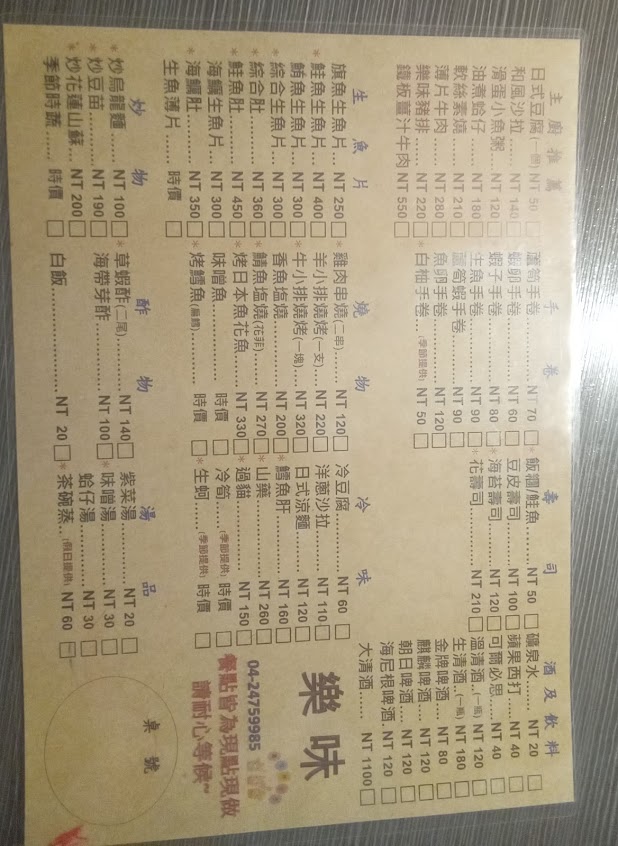 主廚推薦
日式豆腐(一個) NT 50
和風沙拉 NT 140
滑蛋小魚粥 NT 120
油煮蛤仔 NT 180
軟絲素燒 NT 210
薄片牛肉 NT 280
樂味豬排 NT 220
鐵板薑汁牛肉 NT 550
手卷
蘆筍手卷 NT 70
蝦卵手卷 NT 60
蝦子手卷 NT 80
生魚手卷 NT 90
蘆筍蝦手卷 NT 90
魚卵手卷 NT 120
*白柚手卷(季節提供) NT 50
壽司
*飯糰/鮭魚 NT 50
豆皮壽司 NT 100
*海苔壽司 NT 120
*花壽司 NT 210
酒及飲料
礦泉水 NT 20
蘋果西打 NT 40
可爾必思 NT 40
溫清酒(一瓶) NT 120
生清酒(一瓶) NT 180
金牌啤酒 NT 80
麒麟啤酒 NT 120
朝日啤酒 NT 120
海尼根啤酒 NT 120
大清酒 NT 1100
生魚片
旗魚生魚片 NT 250
*鮭魚生魚片 NT 400
鮪魚生魚片 NT 300
*綜合生魚片 NT 300
*綜合肚 NT 360
*鮭魚肚 NT 450
海鱺生魚片 NT 300
*海鱺肚 NT 350
生魚薄片 時價
燒物
*雞肉串燒(二串) NT 120
羊小排燒烤(一支) NT 220
*牛小排燒烤(一塊) NT 320
香魚鹽燒 NT 200
*鯖魚塩燒(花菲) NT 270
*烤日本魚花魚 NT 330
味噌魚 時價
*烤鱈魚(扁鱈) 時價
冷味
冷豆腐 NT 60
洋蔥沙拉 NT 110
日式涼麵 NT 120
*鱈魚肝 NT 160
*山藥 NT 260
*過貓 NT 150
冷筍(季節提供) 時價
*生蚵(季節提供) 時價
炒物
*炒烏龍麵 NT 100
*炒豆苗 NT 190
*炒花蓮山蘇 NT 200
季節時蔬 時價
酢物
*草蝦酢(二尾) NT 140
海帶芽酢 NT 100
白飯 NT 20
湯品
紫菜湯 NT 20
*味噌湯 NT 30
蛤仔湯 NT 30
*茶碗蒸(假日提供) NT 60
樂味
04-24759985
餐點皆為現點現做
請耐心等候~
桌號